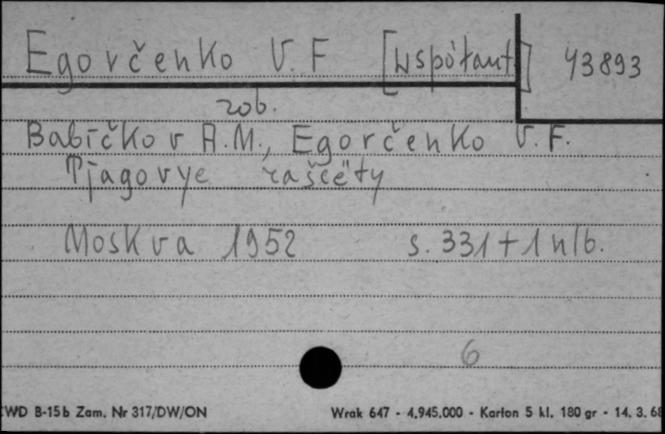 Egorčenko V. F [współaut] 43893
zob.
Babičkov A.M., Egorčenko V.F.
Tjagovye rasčëty
Moskva 1952 s. 331 + 1 nlb.
6
CWD B-15b Zam. Nr 317/DW/ON Wrak 647 - 4.945.000 - Karton 5 kl. 180 gr - 14. 3. 68